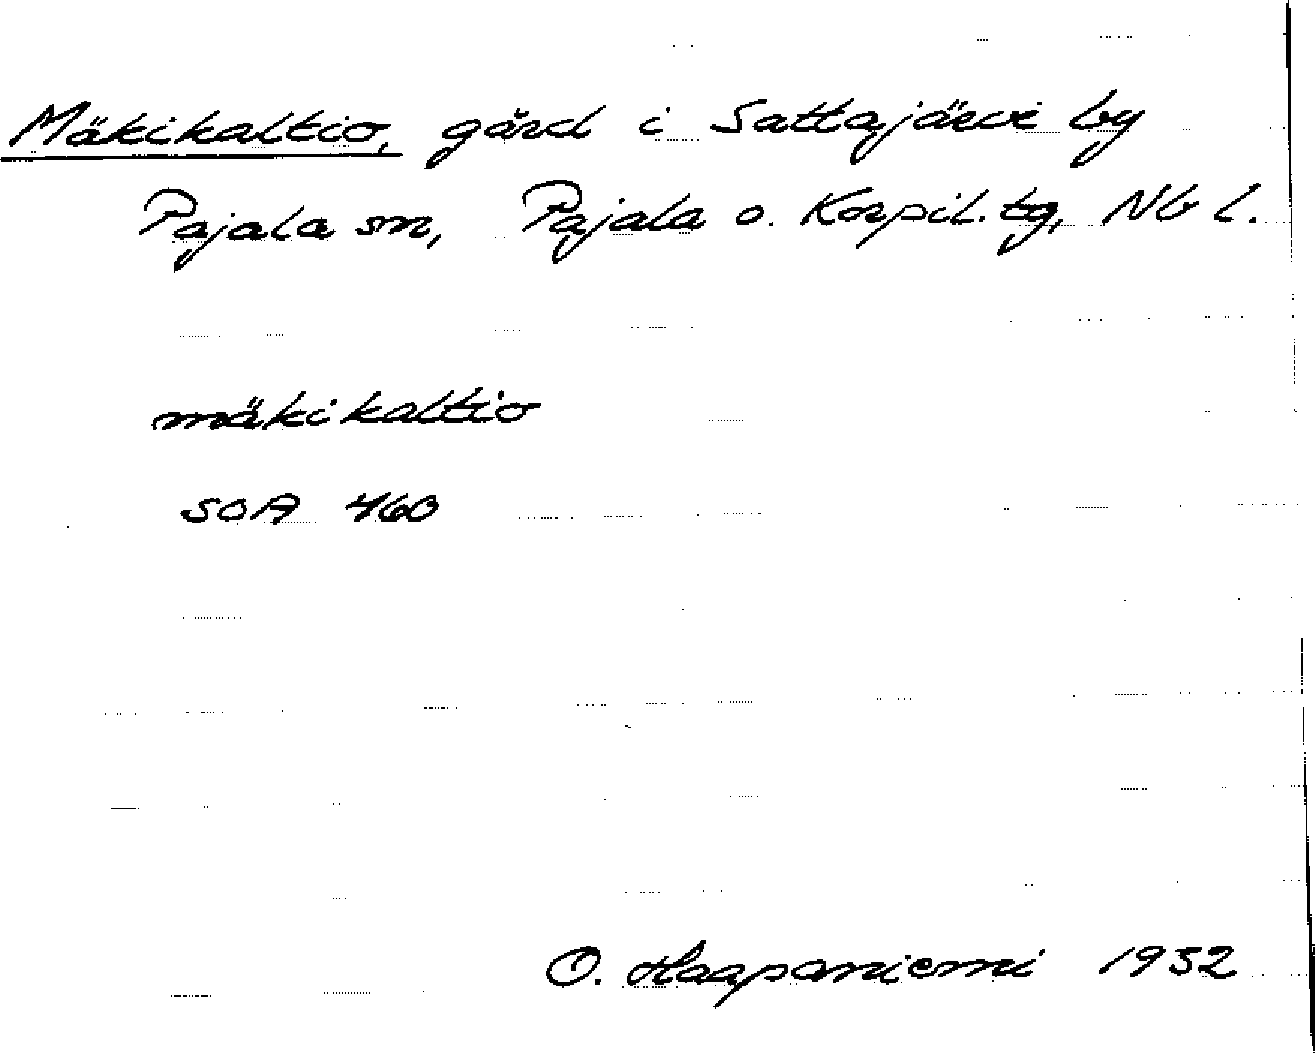 Mäkikaltio, gård i Sattajärvi by
Pajala sn, Pajala o. Korpil. tg, Nb l.
mäkikaltio
SOA 460
O. Haapaniemi 1952